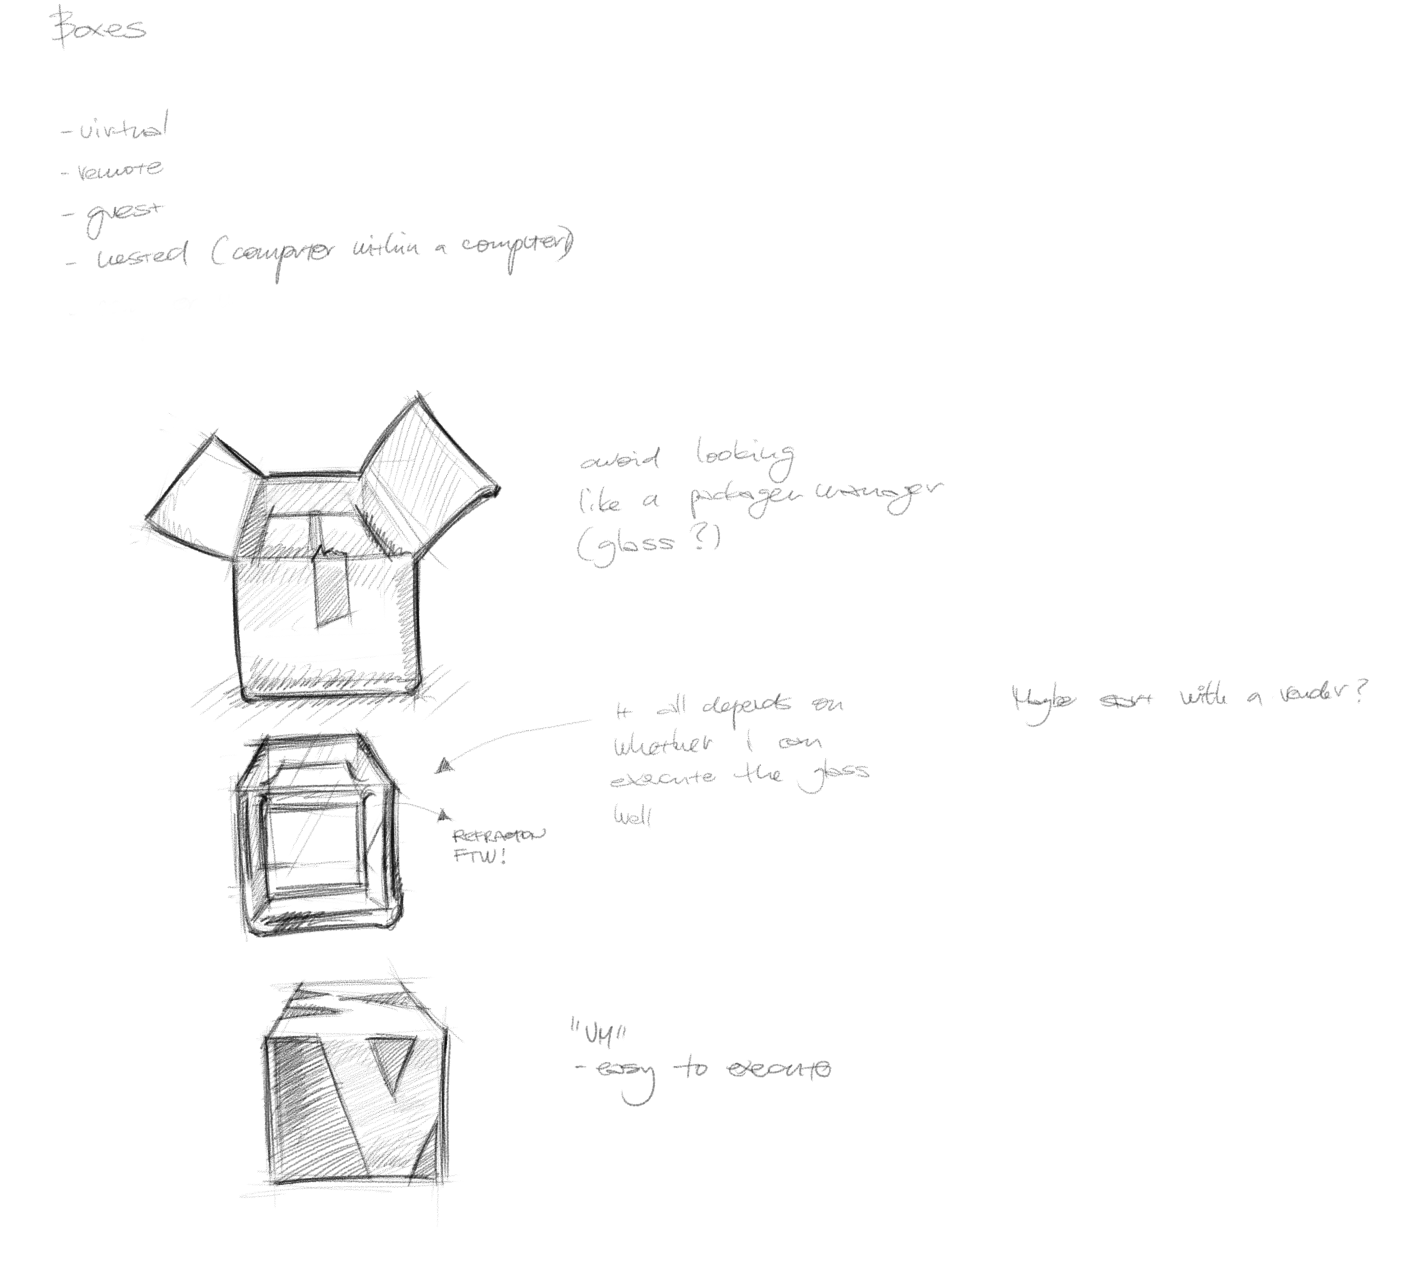 Boxes
- virtual
- remote
- guest
- nested (computer within a computer)
avoid looking
like a packagen manager
(glass?)
It all depends on
whether I can
execute the glass
well
Maybe start with a render?
REFRACTION
FTW!
"VM"
- easy to execute